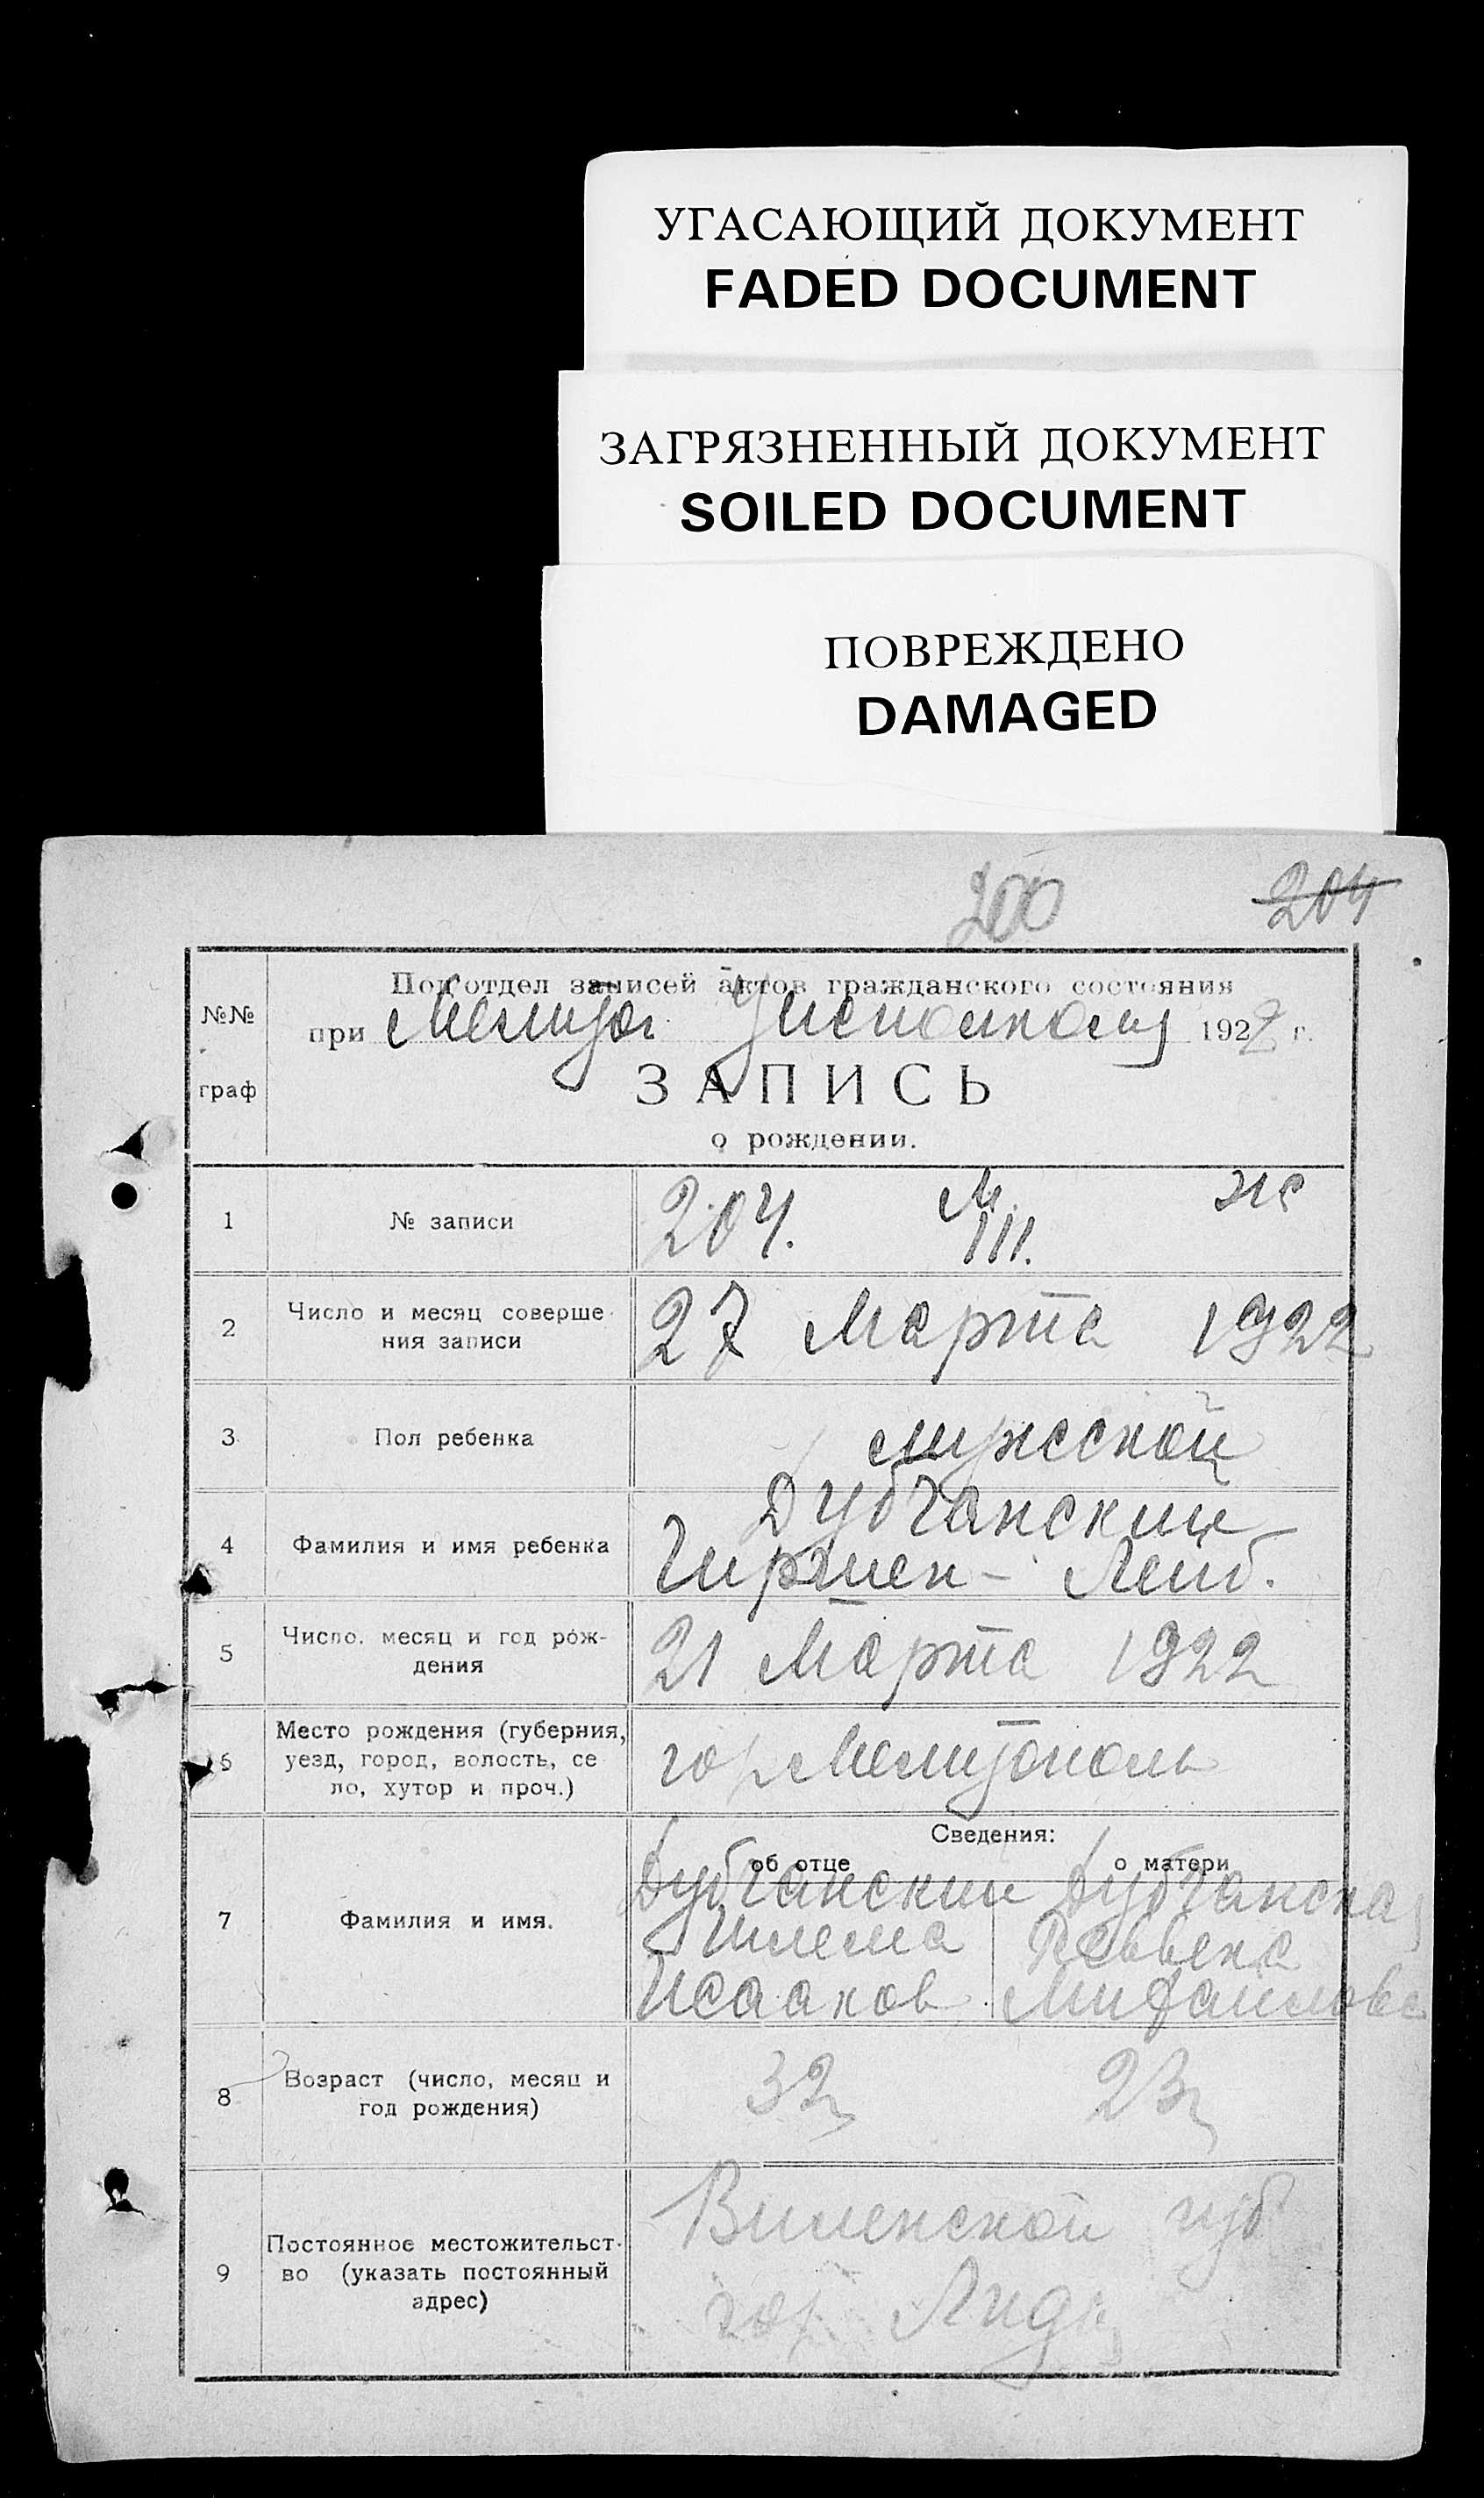 УГАСАЮЩИЙ ДОКУМЕНТ
FADED DOCUMENT
ЗАГРЯЗНЕННЫЙ ДОКУМЕНТ
SOILED DOCUMENT
ПОВРЕЖДЕНО
DAMAGED
200 204
Подотдел записей актов гражданского состояния
№№ граф
при Мелитоп. Уисполкому 1922 г.
ЗАПИСЬ
о рождении.
1 № записи 204. М. III. ж
2 Число и месяц соверше-
ния записи 27 Марта 1922
3 Пол ребенка мужеской
Дубчанский
4 Фамилия и имя ребенка Гиршен-Лейб.
5 Число, месяц и год рож-
дения 21 Марта 1922
6 Место рождения (губерния,
уезд, город, волость, се
ло, хутор и проч.) гор Мелитополь
Сведения:
об отце о матери
Дубчанский Дубчанская
7 Фамилия и имя. Шлема Реввека
Исааков Михайлова
8 Возраст (число, месяц и
год рождения) 32 23
Виленской губ
9 Постоянное местожительст-
во (указать постоянный
адрес) гор. Лида